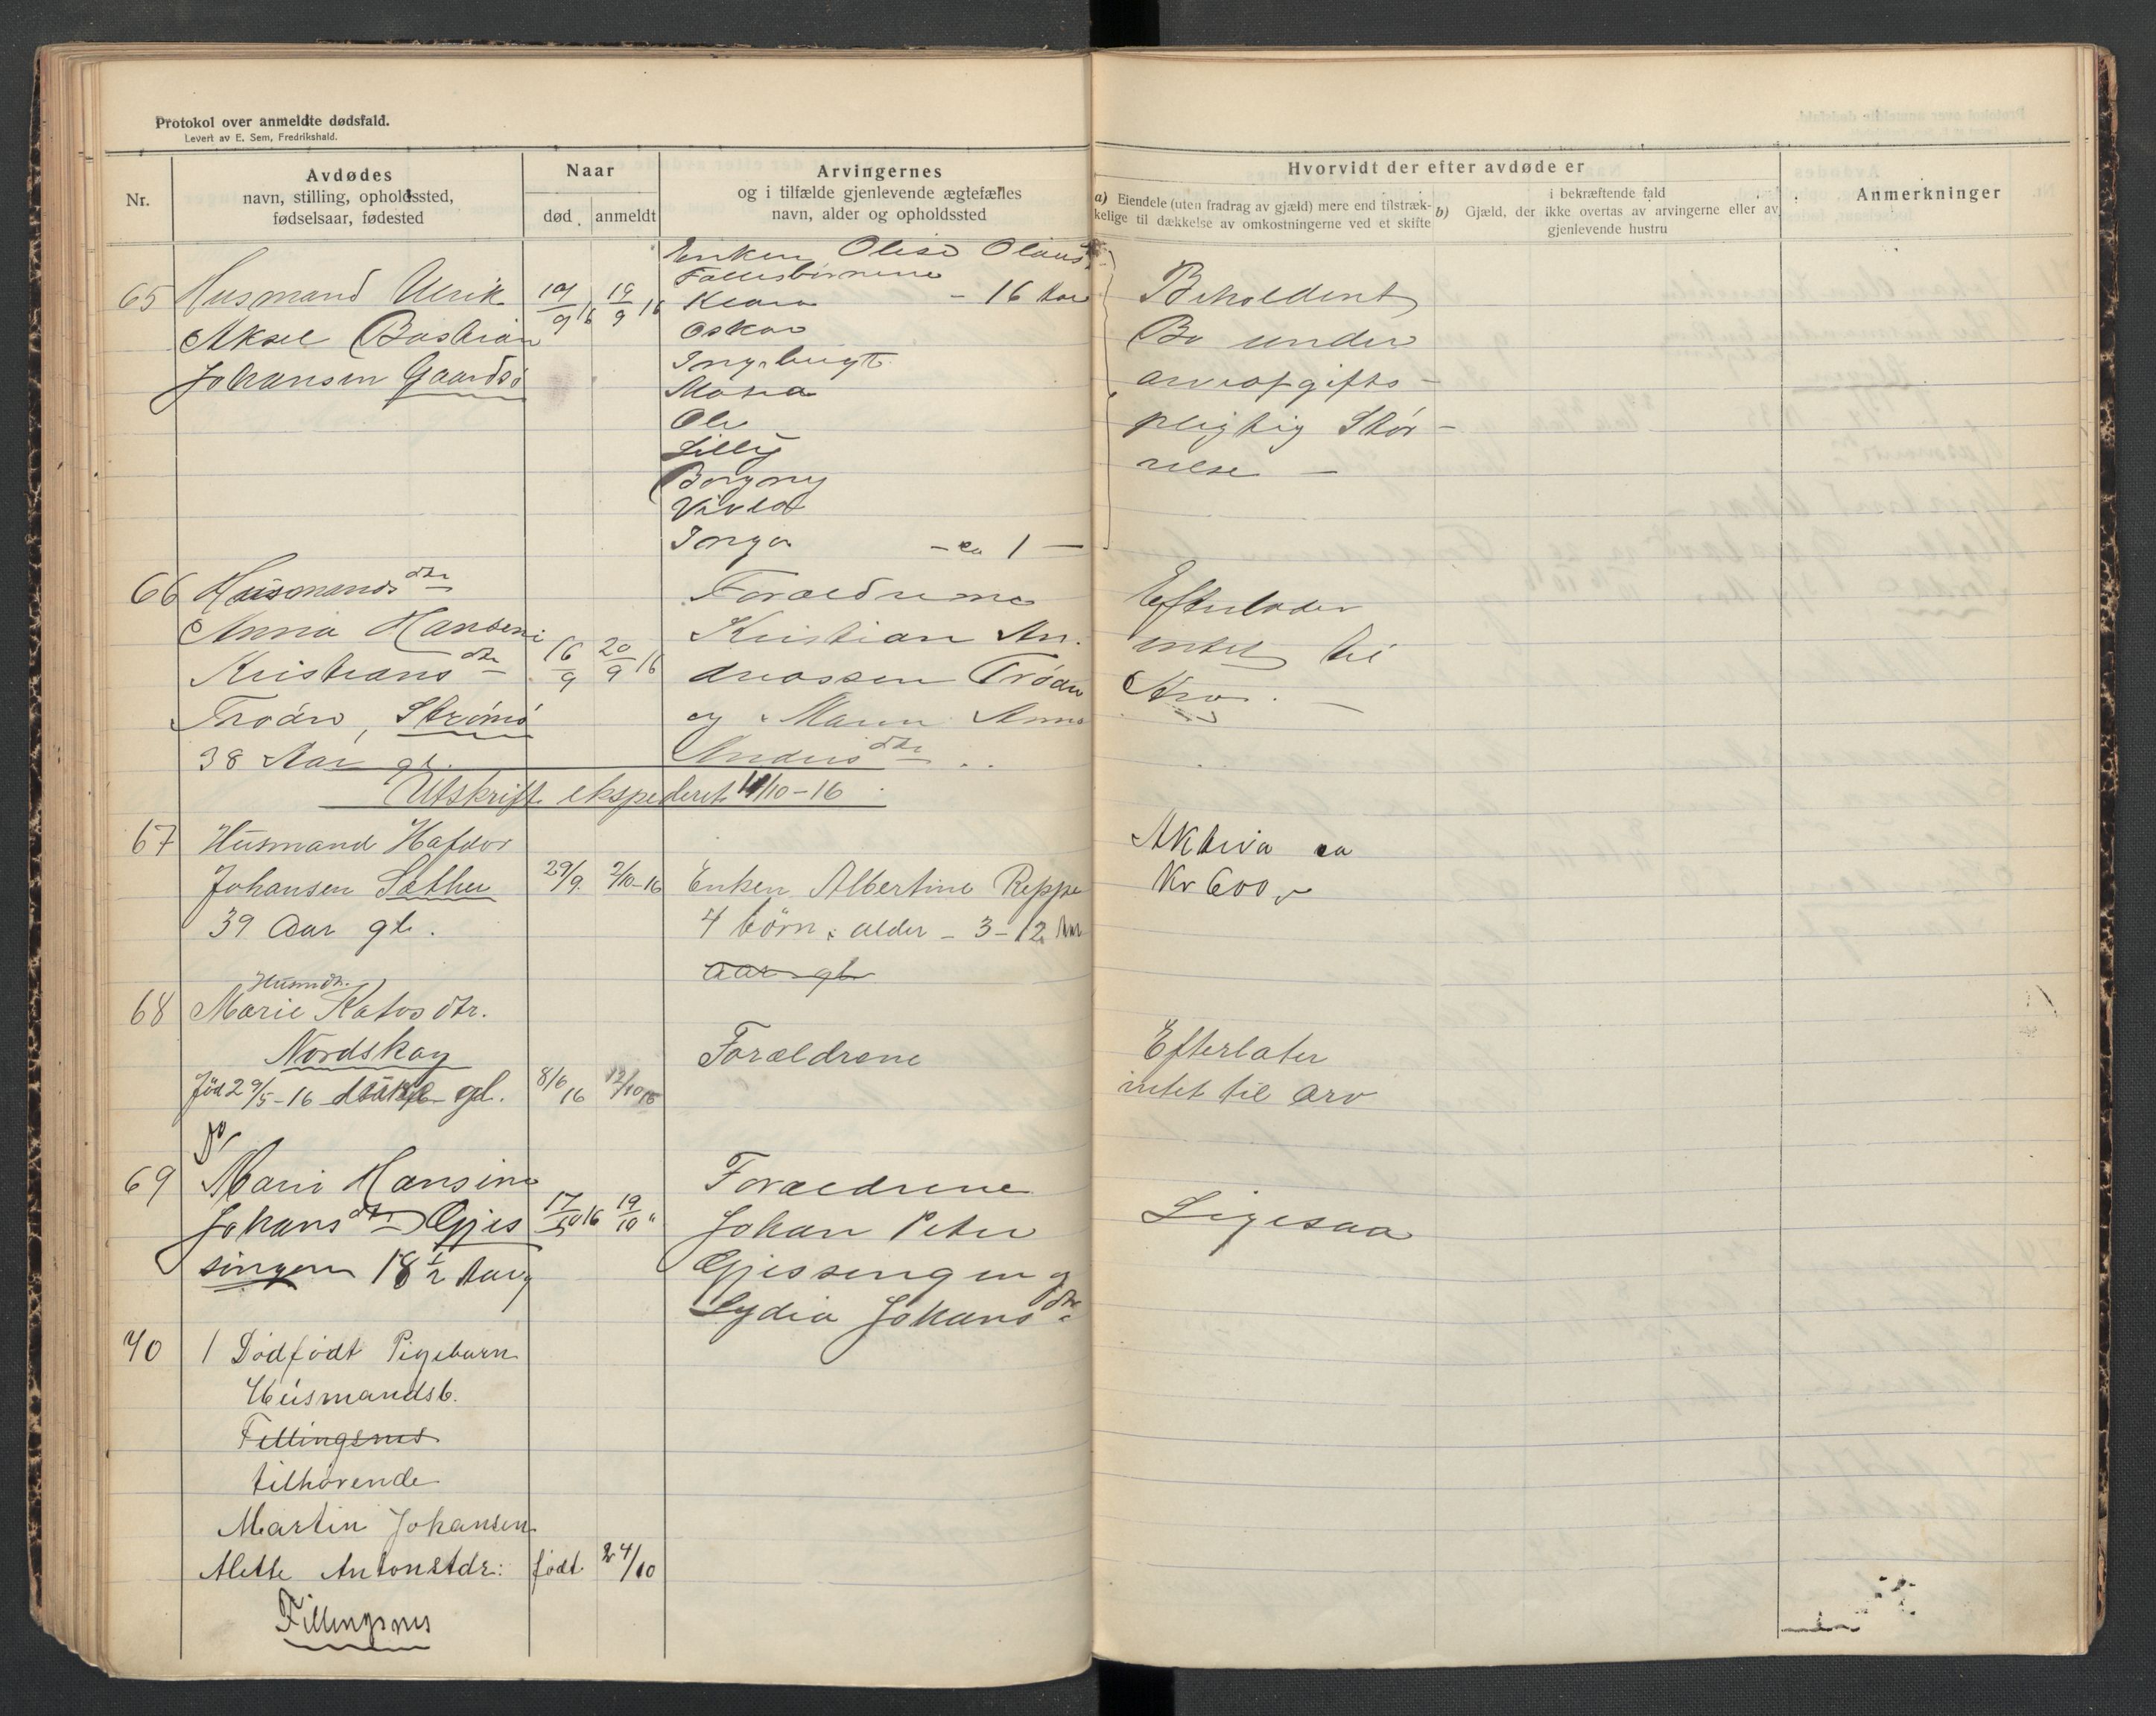 Protokol over anmeldte dødsfald.
Levert av E. Sem, Fredrikshald.
Nr.
Avdødes
navn, stilling, opholdssted,
fødselsaar, fødested
Naar
død
anmeldt
Arvingernes
og i tilfælde gjenlevende ægtefælles
navn, alder og opholdssted
Hvorvidt der efter avdøde er
a) Eiendele (uten fradrag av gjæld) mere end tilstræk-
kelige til dækkelse av omkostningerne ved et skifte
i bekræftende fald
b) Gjæld, der ikke overtas av arvingerne eller av
gjenlevende hustru
Anmerkninger
65 Husmand Ulrik
Aksel Bastian
Johansen Gaardsø
10/9 16 19/9 16
Enken Olise Olaus
Fællesbørnene
Klara - 16 Aar
Oskar
Ingebrigt
Maria
Ole
Lilly
Borgny
Inga - ca 1 -
Beholdent
Bo under
arveafgifts-
pligtig Stør-
relse -
66 Husmandsdtr
Anna Hansine
Kristiansdtr
Troan, Strømø
38 Aar gl.
16/9 20/9 16
Forældrene
Kristian An-
dreassen Troan
og Maren Anna
Andersdtr
Efterlader
intet til
Arv. -
Utskrift ekspederet 11/10-16
67 Husmand Hafdor
Johansen Sæther
39 Aar gl.
29/9 2/10-16
Enken Albertine Reppe
4 børn, alder - 3-12 Aar
aar gl
Aktiva ca
Kr 600,-
68 Husmdtr.
Marie Katosdtr.
Nordskag
Fød 29/5-16 gl.
8/6 16 12/10 16
Forældrene
Efterlater
intet til arv
69 Marie Hansine
Johansdtr Gjes
singen 18 1/2 Aar g
17/10 16 19/10 "
Forældrene
Johan Peter
Gjessingen og
Lydia Johansdtr
Ligesaa
70 1 Dødfødt Pigebarn
Husmandsb.
Fillingsnes
tilhørende
Martin Johansen
Alette Antonetdr: født 24/10
Fillingsnes